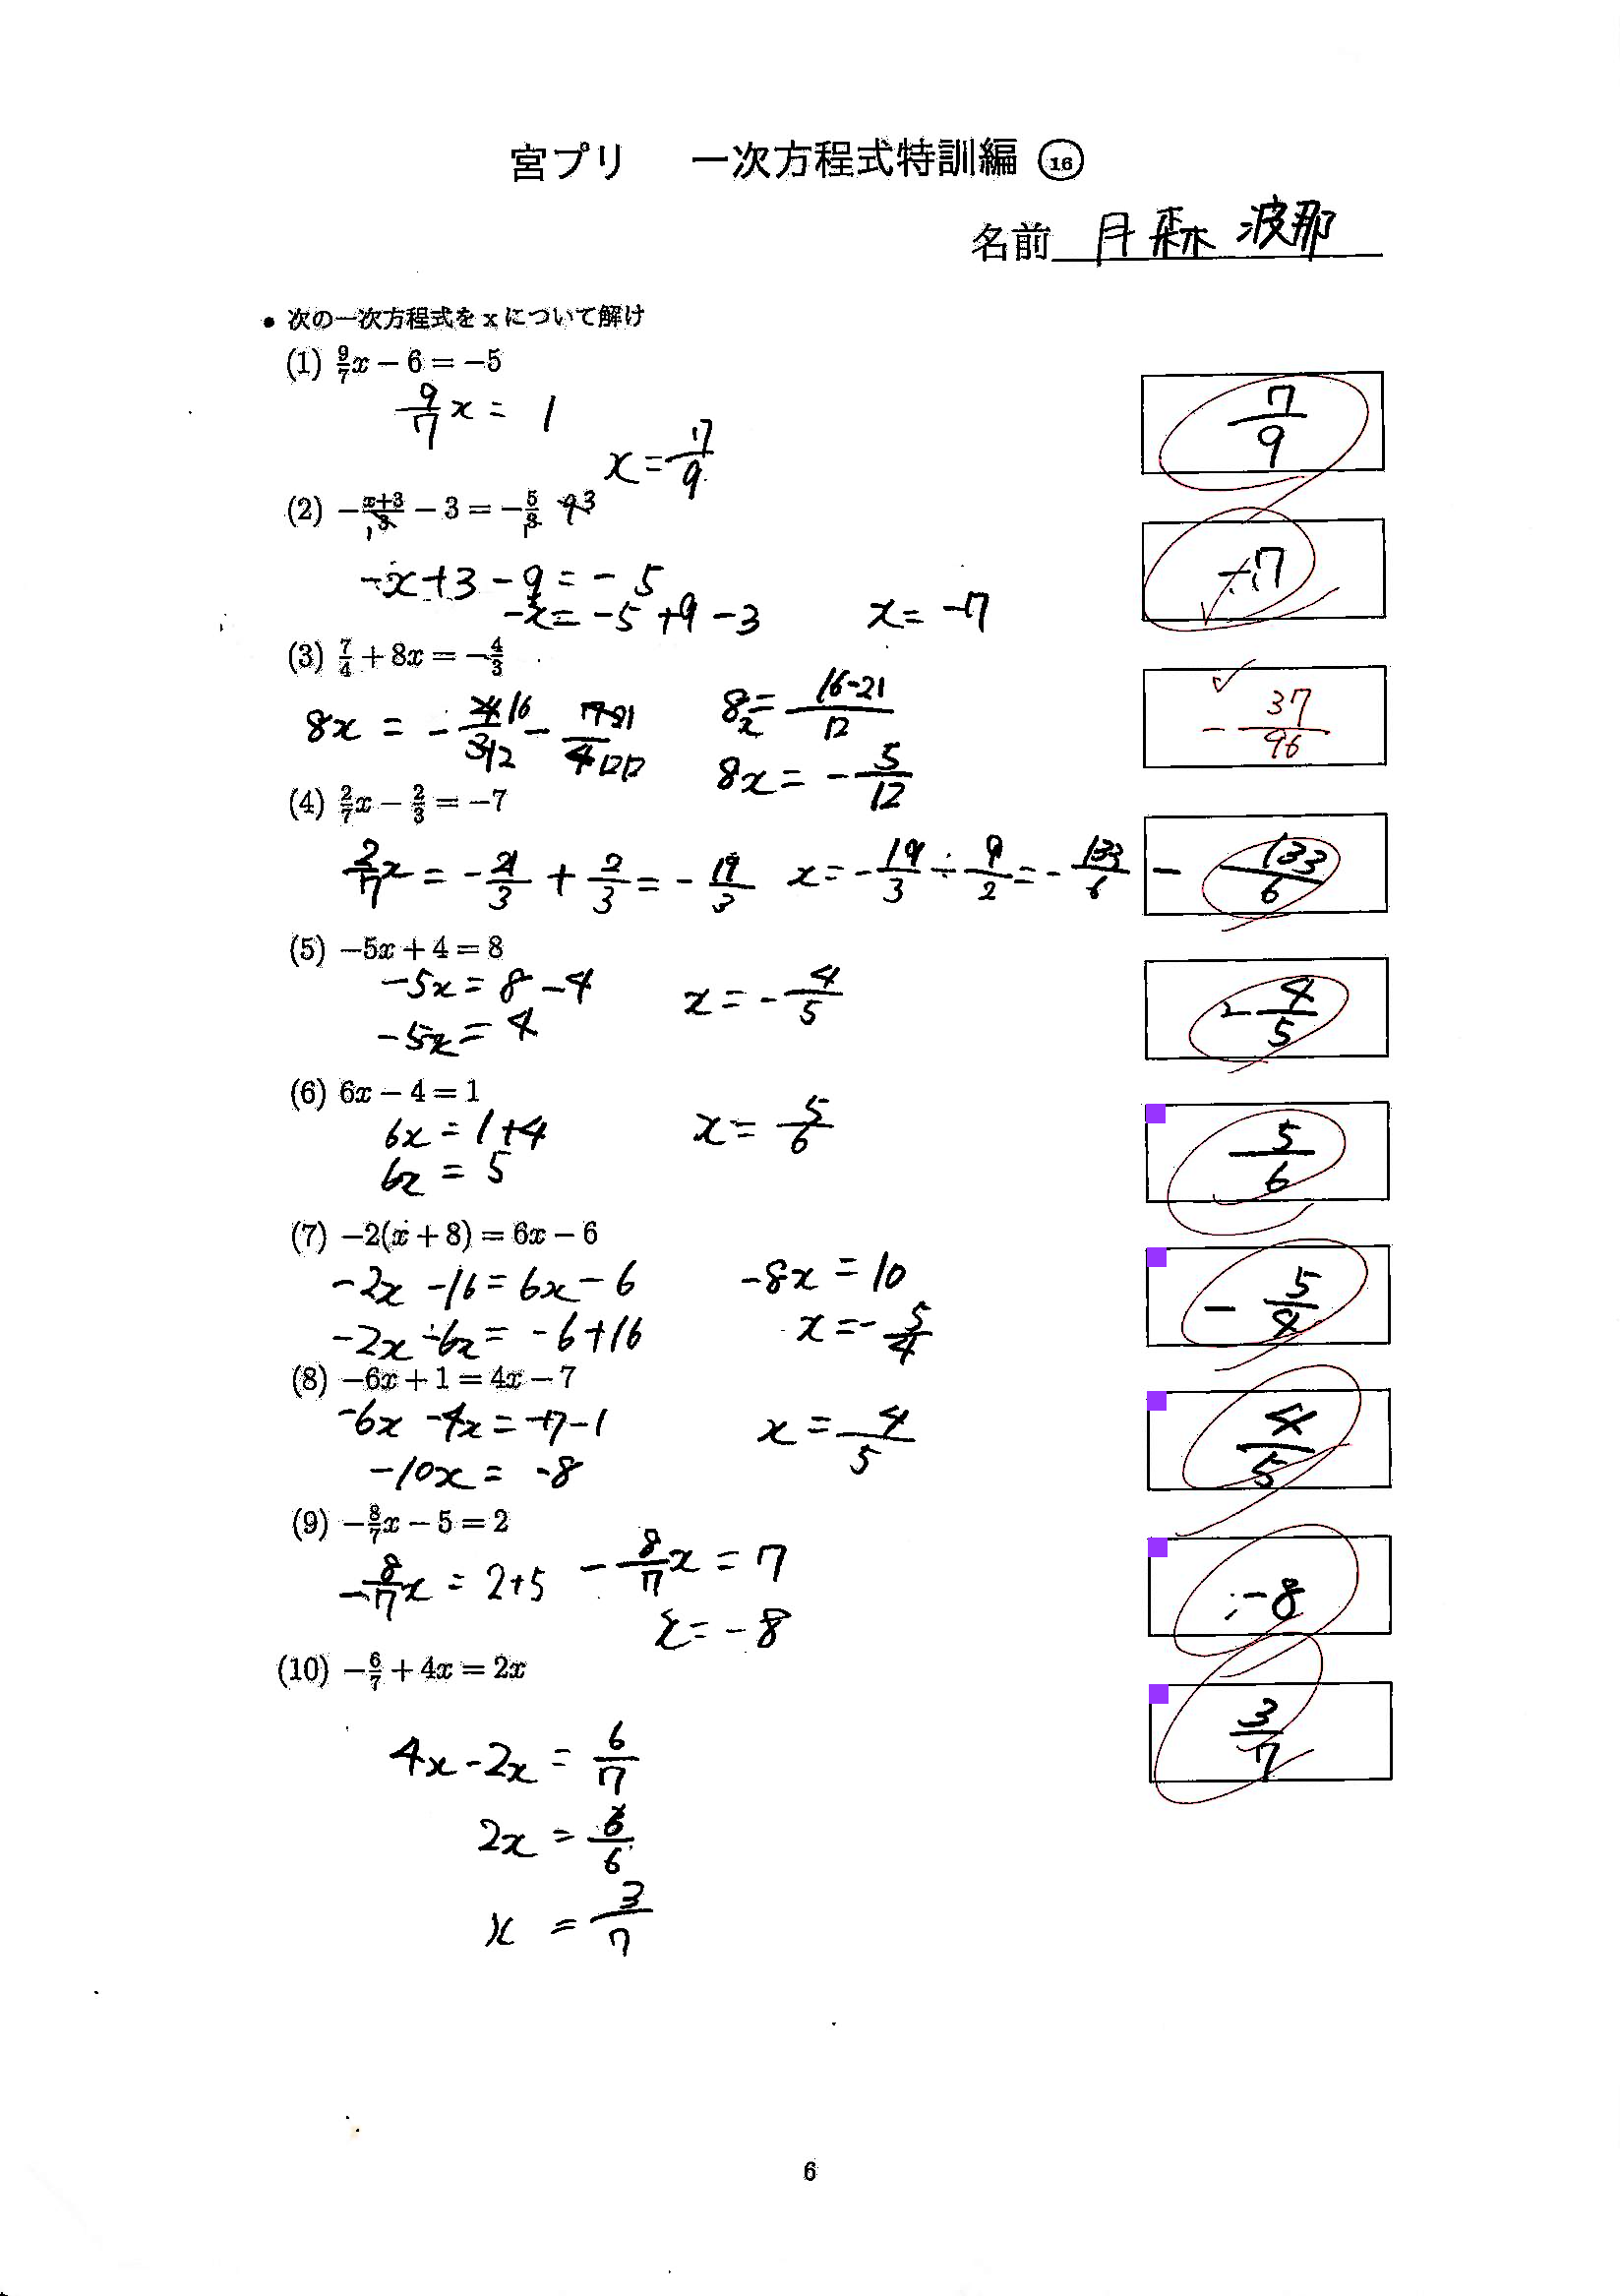 宮プリ 一次方程式特訓編 16
名前 月森 波那
• 次の一次方程式を x について解け
(1) 9/7 x − 6 = −5
9/7 x = 1
x = 7/9
7/9
(2) −(x+3)/3 − 3 = −5/3
−x+3−9 = −5
−x = −5+9−3
x = −7
−7
(3) 7/4 + 8x = −4/3
8x = −16/12 − 21/12
8x = (16−21)/12
8x = −5/12
−37/96
(4) 2/7 x − 2/3 = −7
2/7 x = −21/3 + 2/3 = −19/3
x = −19/3 ÷ 9/2 = −133/6
−133/6
(5) −5x + 4 = 8
−5x = 8−4
−5x = 4
x = −4/5
−4/5
(6) 6x − 4 = 1
6x = 1+4
6x = 5
x = 5/6
5/6
(7) −2(x + 8) = 6x − 6
−2x −16 = 6x − 6
−2x −6x = −6+16
−8x = 10
x = −5/4
−5/4
(8) −6x + 1 = 4x − 7
−6x −4x = −7−1
−10x = −8
x = 4/5
4/5
(9) −8/7 x − 5 = 2
−8/7 x = 2+5
−8/7 x = 7
x = −8
−8
(10) −6/7 + 4x = 2x
4x−2x = 6/7
2x = 6/6
x = 3/7
3/7
6